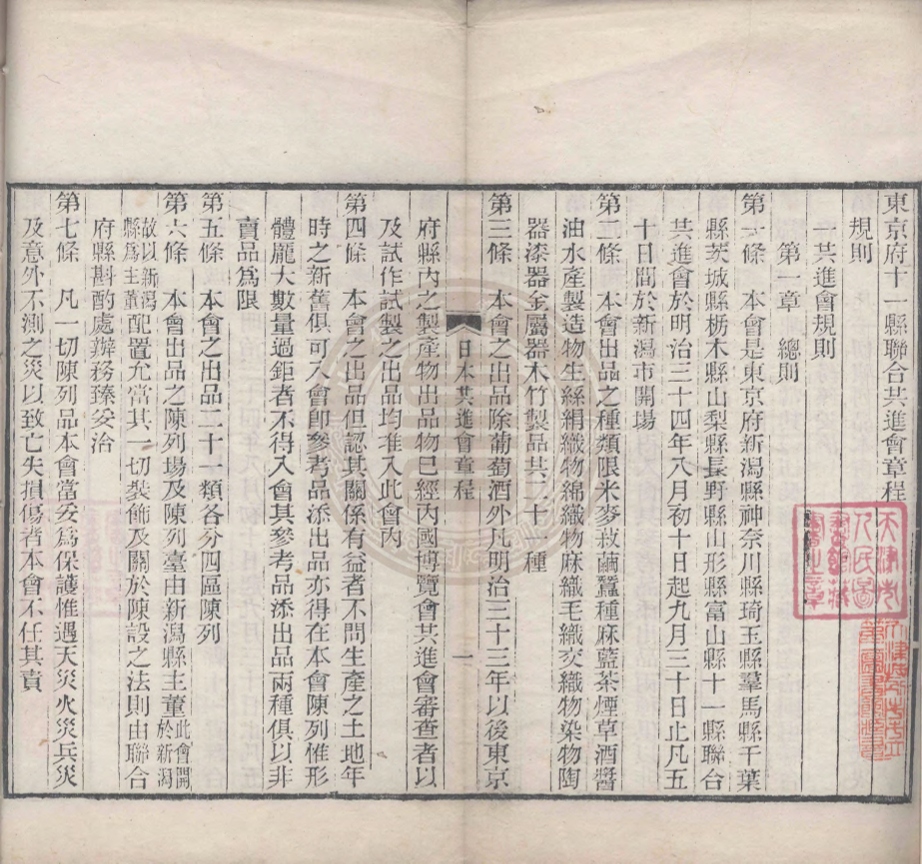 東京府十一縣聯合共進會章程
規則
一共進會規則
第一章　總則
第一條　本會是東京府新潟縣神奈川縣琦玉縣羣馬縣千葉
縣茨城縣栃木縣山梨縣長野縣山形縣富山縣十一縣聯合
共進會於明治三十四年八月初十日起九月三十日止凡五
十日間於新潟市開場
第二條　本會出品之種類限米麥菽繭蠶種麻藍茶煙草酒醬
油水產製造物生絲絹織物綿織物麻織毛織交織物染物陶
器漆器金屬器木竹製品共二十一種
第三條　本會之出品除葡萄酒外凡明治三十三年以後東京
日本共進會章程　一
府縣內之製產物出品物已經內國博覽會共進會審查者以
及試作試製之出品均准入此會內
第四條　本會之出品但認其關係有益者不問生產之土地年
時之新舊俱可入會卽參考品添出品亦得在本會陳列惟形
體龐大數量過鉅者不得入會其參考品添出品兩種俱以非
賣品爲限
第五條　本會之出品二十一類各分四區陳列
第六條　本會出品之陳列場及陳列臺由新潟縣主董此會開於新潟
故以新潟縣爲主董配置允當其一切裝飾及關於陳設之法則由聯合
府縣斟酌處辦務臻妥治
第七條　凡一切陳列品本會當妥爲保護惟遇天災火災兵災
及意外不測之災以致亡失損傷者本會不任其責
天津市
人民圖
書館藏
書之章